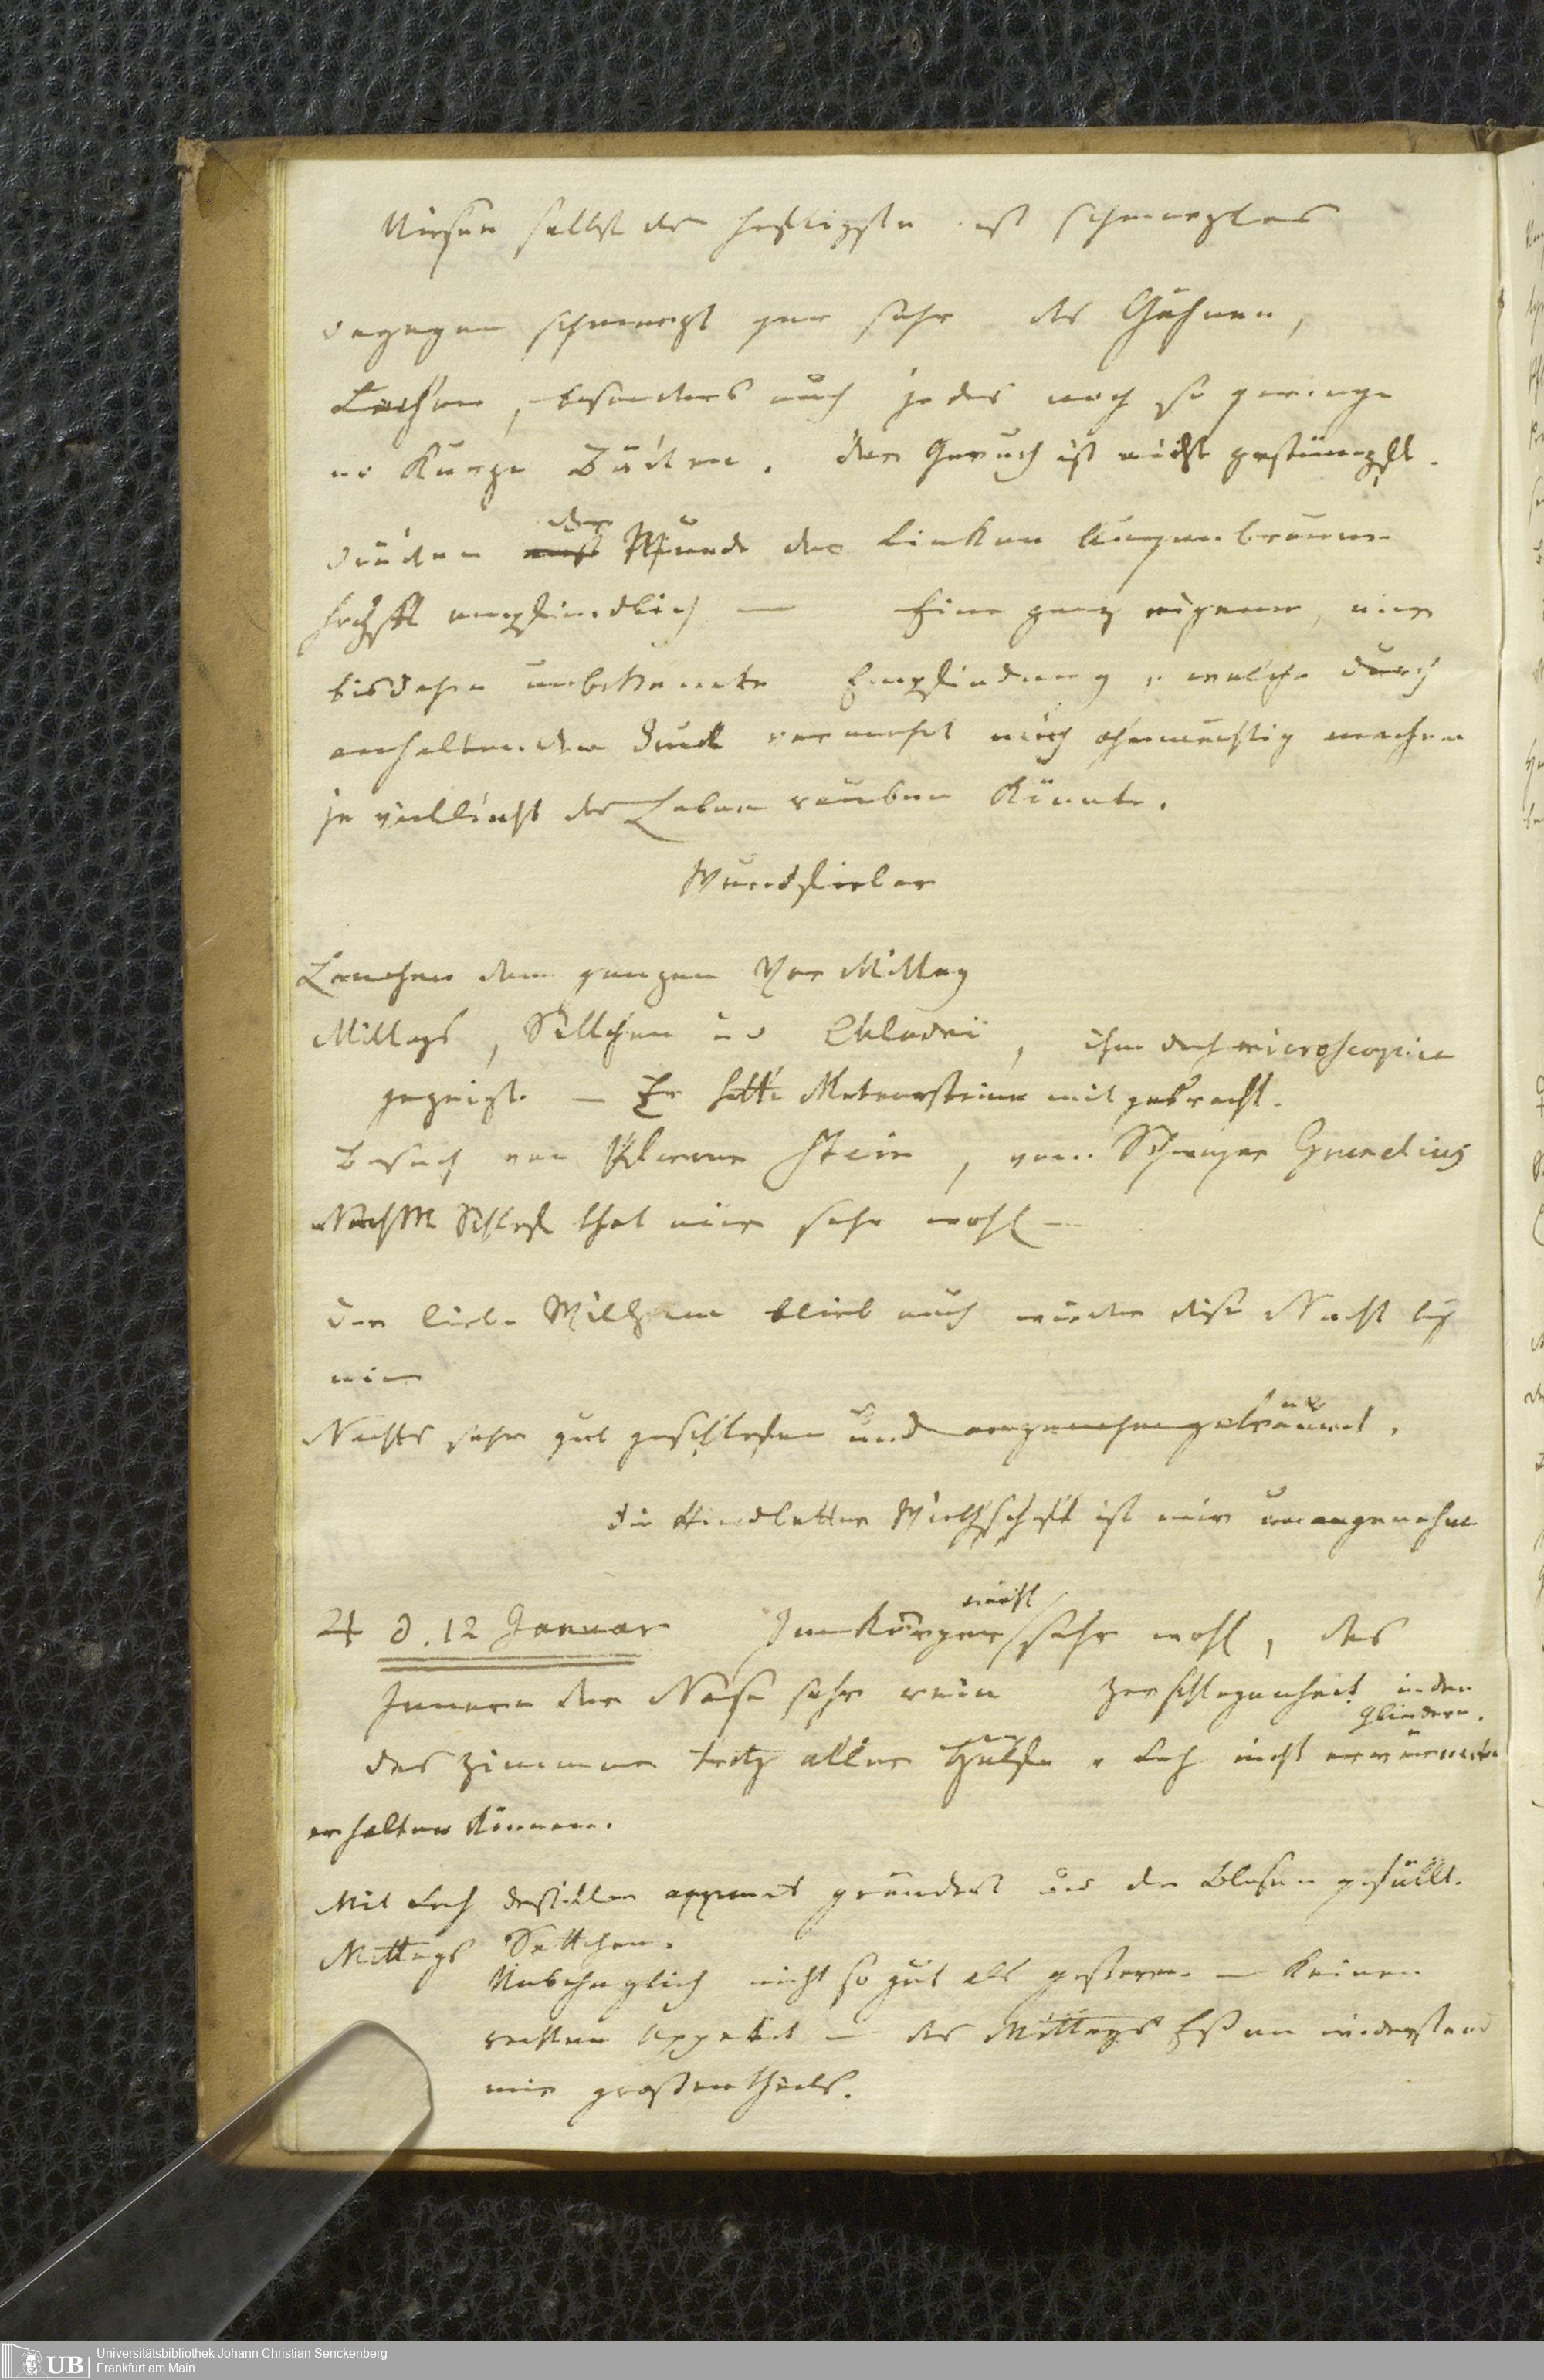 Niesen selbst der heftigste ist schmerzlos
dagegen schmerzt gar sehr das Gähnen,
Lachen, besonders auch jedes noch so geringe
u Kurze Bücken. der Geruch ist nicht gestümpft.
der
Wunde des linken Augenbrauns
höchst empfindlich — Eine ganz eigene, mir
bisdahin unbekannte Empfindung, welche durch
anhaltenden Druck vermehrt mich ohnmächtig machen
ja vielleicht das Leben rauben Könnte.
Wundfieber
Lenchen den ganzen Vor Mittag
Mittags, Settchen u Chladni, ihm das microscopium
gezeigt. — Er hatte Meteorsteine mit gebracht.
Besuch von Pfarrer Stein, vom Schwager Grunelius
NachM Schlaf that mir sehr wohl —
der liebe Wilhelm blieb auch wieder diese Nacht bey
mir
Nachts sehr gut geschlafen und angenehm geträumt.
die Wirthschaft ist mir unangenehm
♃ d. 12 Januar Im Körper nicht sehr wohl, das
Innere der Nase sehr rein Zerschlagenheit in den
Gliedern.
das Zimmer trotz aller Hülfe v Loh nicht erwärmter
erhalten Können.
Mit Loh destillir apparat geändert und die Blasen gefüllt.
Mittags Settchen.
Unbehaglich nicht so gut als gestern — Keinen
rechten Appetit — das Mittags Eßen widerstand
mir großentheils.
Universitätsbibliothek Johann Christian Senckenberg
Frankfurt am Main
UB